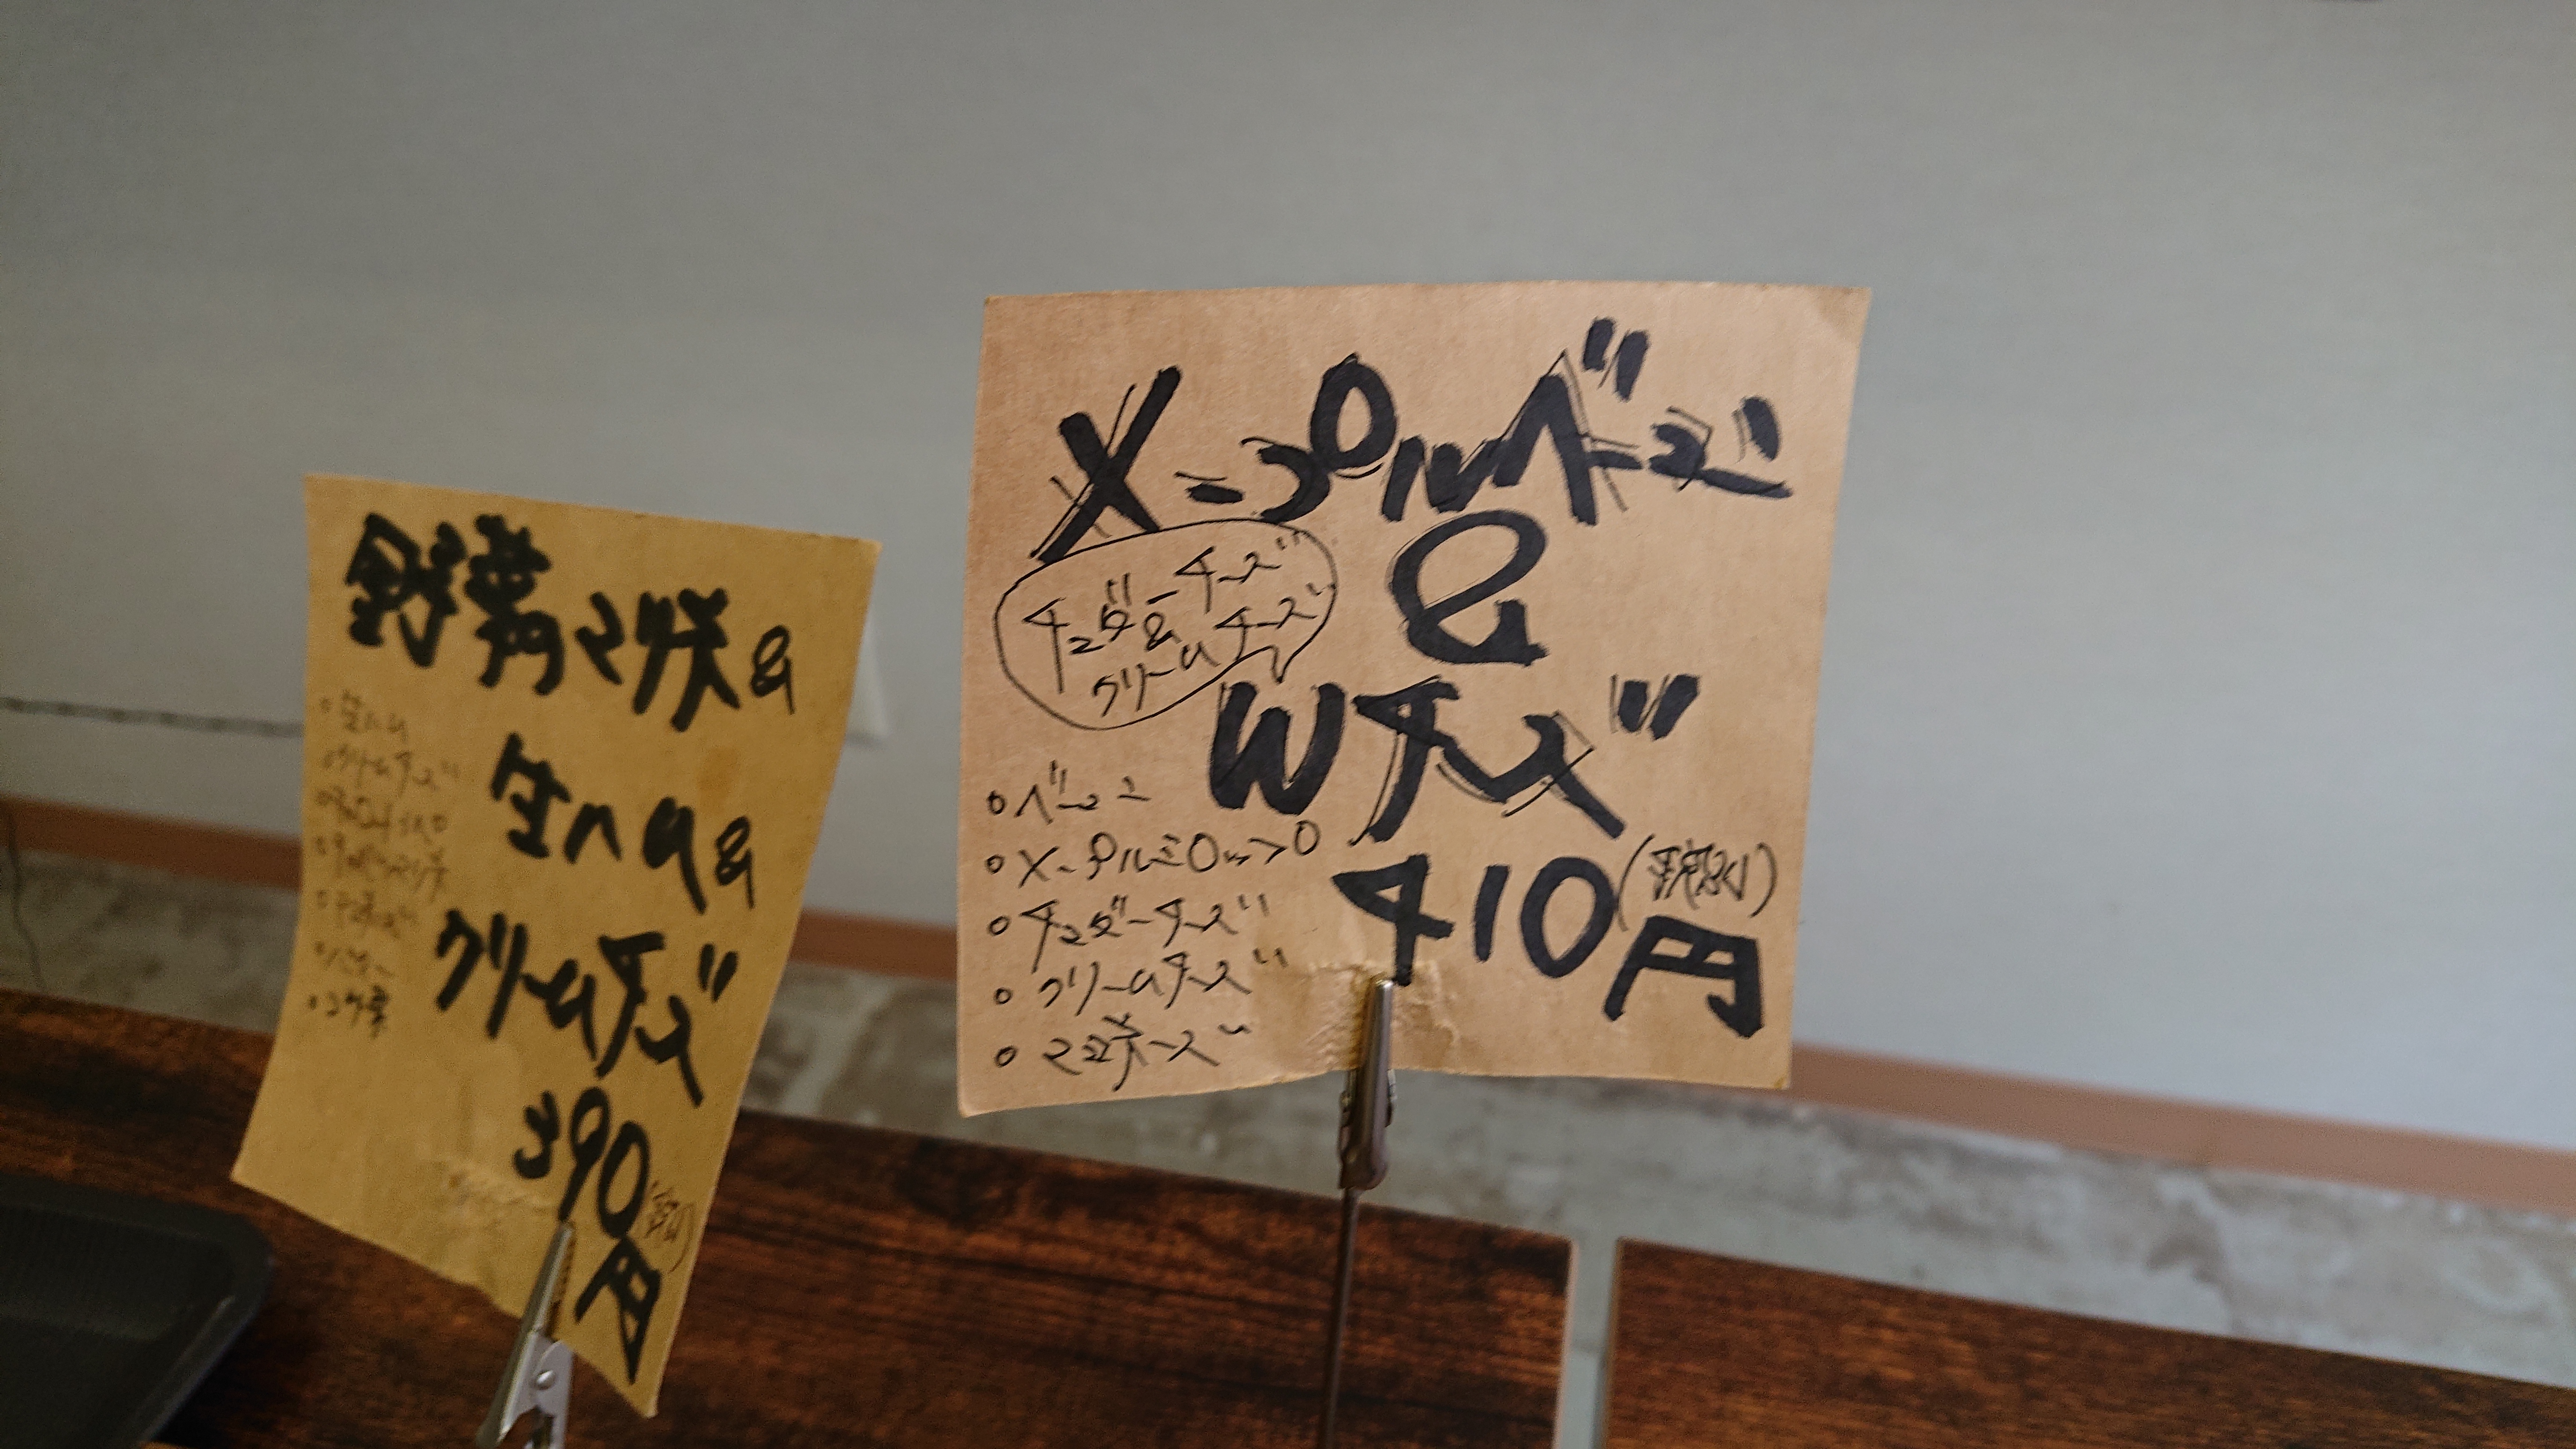 野菜マリネ&
生ハム&
クリームチーズ
390円
・生ハム
・クリームチーズ
メープルベーコン
&
Wチーズ
チェダーチーズ
&
クリームチーズ
410円
(税別)
・ベーコン
・メープルシロップ
・チェダーチーズ
・クリームチーズ
・マヨネーズ